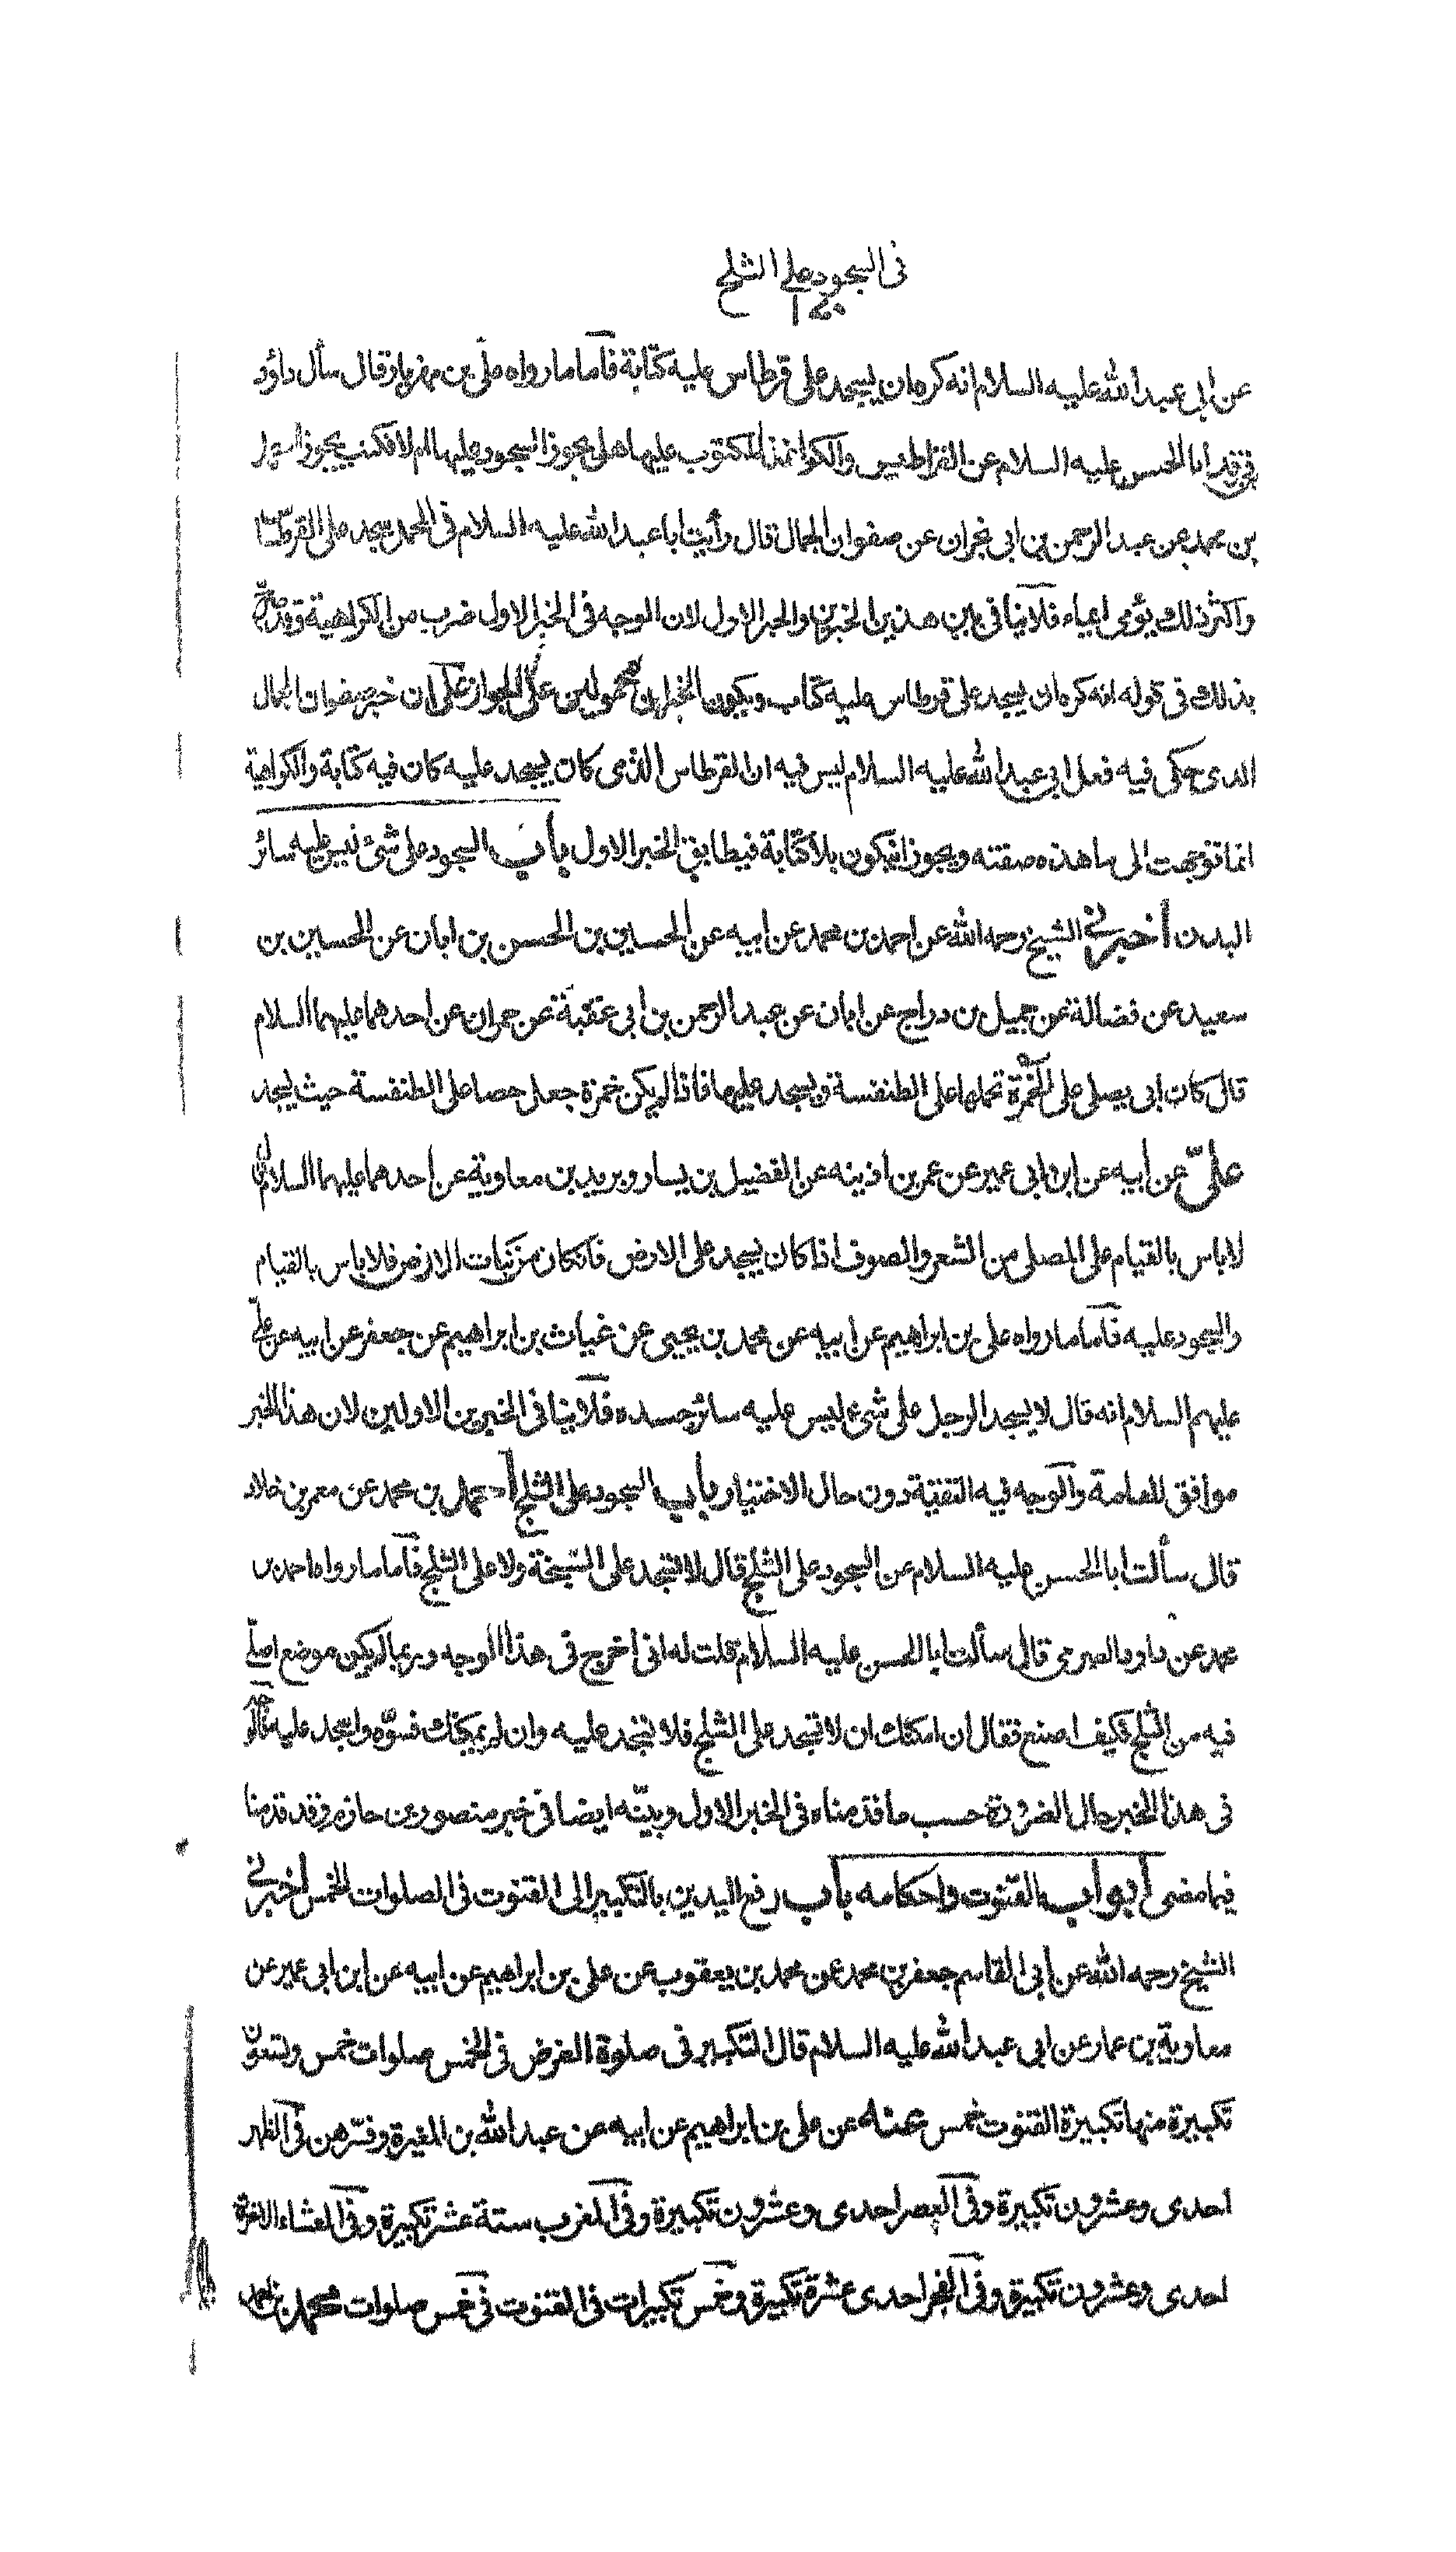 فى السجود على الثلج
عن ابى عبد الله عليه السلام انه كره ان يسجد على قرطاس عليه كتابة فاما ما رواه على بن مهزيار قال سأل داؤد
بن فرقد ابا الحسن عليه السلام عن القراطيس والكواغذ المكتوب عليها هل يجوز السجود عليها ام لا فكتب يجوز
بن محمد عن عبد الرحمن بن ابى نجران عن صفوان الجمال قال رأيت ابا عبد الله عليه السلام فى المحمل يسجد على القرطاس
واكثر ذلك يؤمى ايماء فلا ينافى بين هذين الخبرين والخبر الاول لان الوجه فى الخبر الاول ضرب من الكراهية وقد صرح
بذلك فى قوله انه كره ان يسجد على قرطاس عليه كتاب ويكون الخبران محمولين على الجواز على ان خبر صفوان الجمال
الذى حكى فيه فعل ابى عبد الله عليه السلام ليس فيه ان القرطاس الذى كان يسجد عليه كان فيه كتابة والكراهية
انما توجهت الى ما هذه صفته ويجوز ان يكون بلا كتابة فيطابق الخبر الاول باب السجود على شئ ليس عليه سائر
البدن أخبرنى الشيخ رحمه الله عن احمد بن محمد عن ابيه عن الحسين بن الحسن بن ابان عن الحسين بن
سعيد عن فضالة عن جميل بن دراج عن ابان عن عبد الرحمن بن ابى عقبة عن حمران عن احدهما عليهما السلام
قال كان ابى يصلى على الخمرة تحملها على الطنفسة ويسجد عليها فاذا لم يكن خمرة جعل حصا على الطنفسة حيث يسجد
علىّ عن ابيه عن ابن ابى عمير عن عمر بن اذينه عن الفضيل بن يسار وبريد بن معاوية عن احدهما عليهما السلام قال
لا باس بالقيام على المصلى من الشعر والصوف اذا كان يسجد على الارض فان كان من نبات الارض فلا باس بالقيام
والسجود عليه فاما ما رواه على بن ابراهيم عن ابيه عن محمد بن يحيى عن غياث بن ابراهيم عن جعفر عن ابيه عن على
عليهم السلام انه قال لا يسجد الرجل على شئ ليس عليه سائر جسده فلا ينافى الخبرين الاولين لان هذا الخبر
موافق للعامة والوجه فيه التقية دون حال الاختيار باب السجود على الثلج أحمد بن محمد عن معمر بن خلاد
قال سألت ابا الحسن عليه السلام عن السجود على الثلج قال لا تسجد على السبخة ولا على الثلج فاما ما رواه احمد بن
محمد عن داود الصرمى قال سألت ابا الحسن عليه السلام قلت له انى اخرج فى هذا الوجه وربما لم يكن موضع اصلى
فيه من الثلج فكيف اصنع فقال ان امكنك ان لا تسجد على الثلج فلا تسجد عليه وان لم يمكنك فسوّه واسجد عليه فالوجه
فى هذا الخبر حال الضرورة حسب ما قدمناه فى الخبر الاول وبيّنه ايضا فى خبر منصور بن حازم وقد قدمنا
فيما مضى أبواب القنوت واحكامه باب رفع اليدين بالتكبير الى القنوت فى الصلوات الخمس أخبرنى
الشيخ رحمه الله عن ابى القاسم جعفر بن محمد عن محمد بن يعقوب عن على بن ابراهيم عن ابيه عن ابن ابى عمير عن
معاوية بن عمار عن ابى عبد الله عليه السلام قال التكبير فى صلوة الفرض فى الخمس صلوات خمس وتسعون
تكبيرة منها تكبيرة القنوت خمس عنه عن على بن ابراهيم عن ابيه عن عبد الله بن المغيرة وفسرهن فى الظهر
احدى وعشرون تكبيرة وفى العصر احدى وعشرون تكبيرة وفى المغرب ستة عشر تكبيرة وفى العشاء الاخرة
احدى وعشرون تكبيرة وفى الفجر احدى عشرة تكبيرة وخمس تكبيرات فى القنوت فى خمس صلوات محمد بن احمد